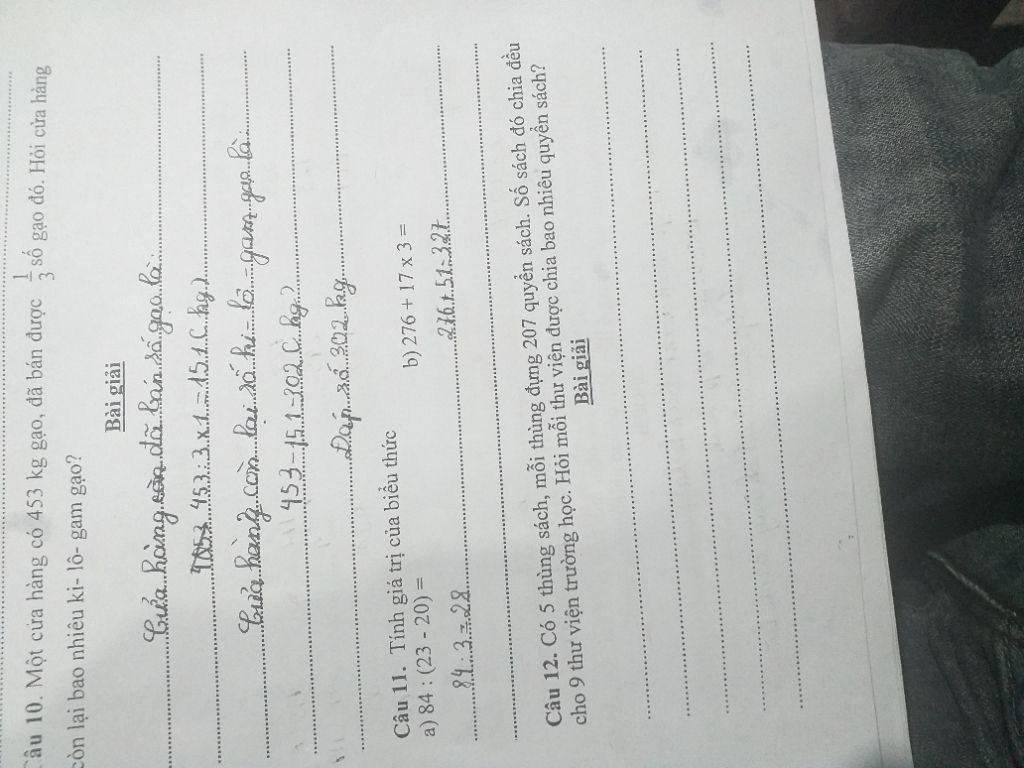 Câu 10. Một cửa hàng có 453 kg gạo, đã bán được 1/3 số gạo đó. Hỏi cửa hàng
còn lại bao nhiêu ki- lô- gam gạo?
Bài giải
Cửa hàng đã bán số gạo là:
453 : 3 x 1 = 151 ( kg )
Cửa hàng còn lại số ki - lô - gam gạo là:
453 - 151 = 302 ( kg )
Đáp số 302 kg
Câu 11. Tính giá trị của biểu thức
a) 84 : (23 - 20) = b) 276 + 17 x 3 =
84 : 3 = 28 276 + 51 = 327
Câu 12. Có 5 thùng sách, mỗi thùng đựng 207 quyển sách. Số sách đó chia đều
cho 9 thư viện trường học. Hỏi mỗi thư viện được chia bao nhiêu quyển sách?
Bài giải